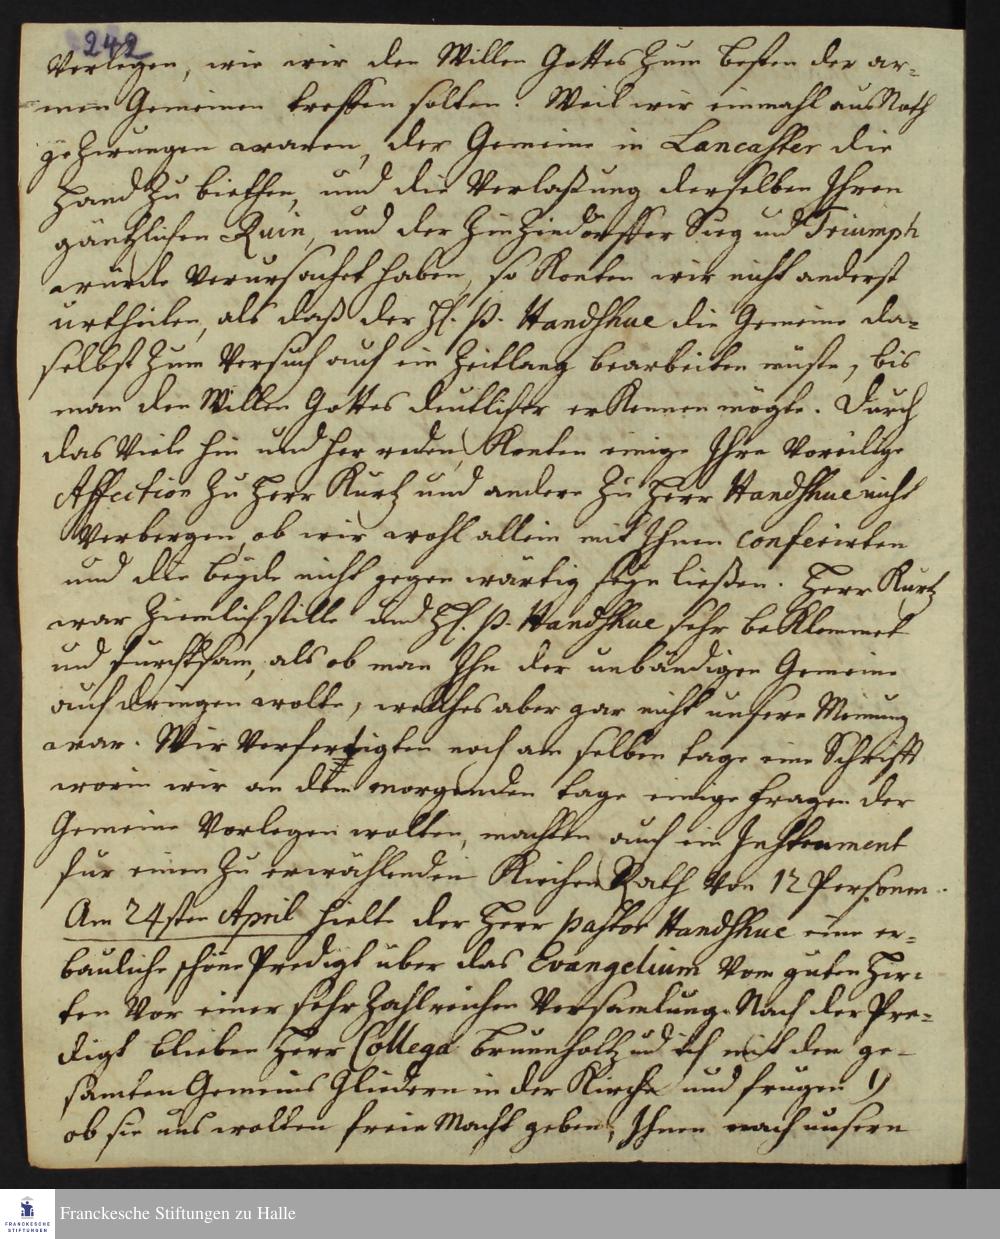 242
Verlegen, wie wir den Willen Gottes zum besten der ar=
men Gemeinen treffen solten. Weil wir einmahl aus Noth
gezwungen waren, der Gemeine in Lancaster die
Hand zu biethen, und die Verlaßung derselben Ihren
gäntzlichen Ruin, und der Zinzindörffer Sieg und Triumph
würde verursachet haben, so konten wir nicht anderst
urtheilen, als daß der H. P. Handshue die Gemeine da=
selbst zum Versuch auf ein Zeitlang bearbeiten müste, bis
man den Willen Gottes deutlicher erkennen mögte. Durch
das Viele hin und her reden, konten einige Ihre Voreilige
Affection zu Herr Kurtz und andere zu Herr Handshue nicht
Verbergen, ob wir wohl allein mit Ihnen conferirten
und die beyde nicht gegenwärtig seyn ließen. Herr Kurtz
war ziemlich stille und H. P. Handshue sehr beklemmet
und furchtsam, als ob man Ihn der unbändigen Gemeine
aufdringen wolte, welches aber gar nicht unsere Meinung
war. Wir Verfertigten noch am selben tage eine Schrifft
worin wir an dem morgenden tage einige Fragen der
Gemeine Vorlegen wolten, machten auch ein Instrument
für einen zu erwählenden Kirchen Rath von 12 Personen.
Am 24sten April hielte der Herr Pastor Handshue eine er=
bauliche schöne Predigt über das Evangelium Vom guten Hir=
ten Vor einer sehr zahlreichen Versamlung. Nach der Pre=
digt blieben Herr Collega Brunnholtz und ich mit den ge=
samten Gemeins Gliedern in der Kirche und frugen 1)
ob sie uns wolten freie Macht geben, Ihnen nach unsern
FRANCKESCHE
STIFTUNGEN
Franckesche Stiftungen zu Halle